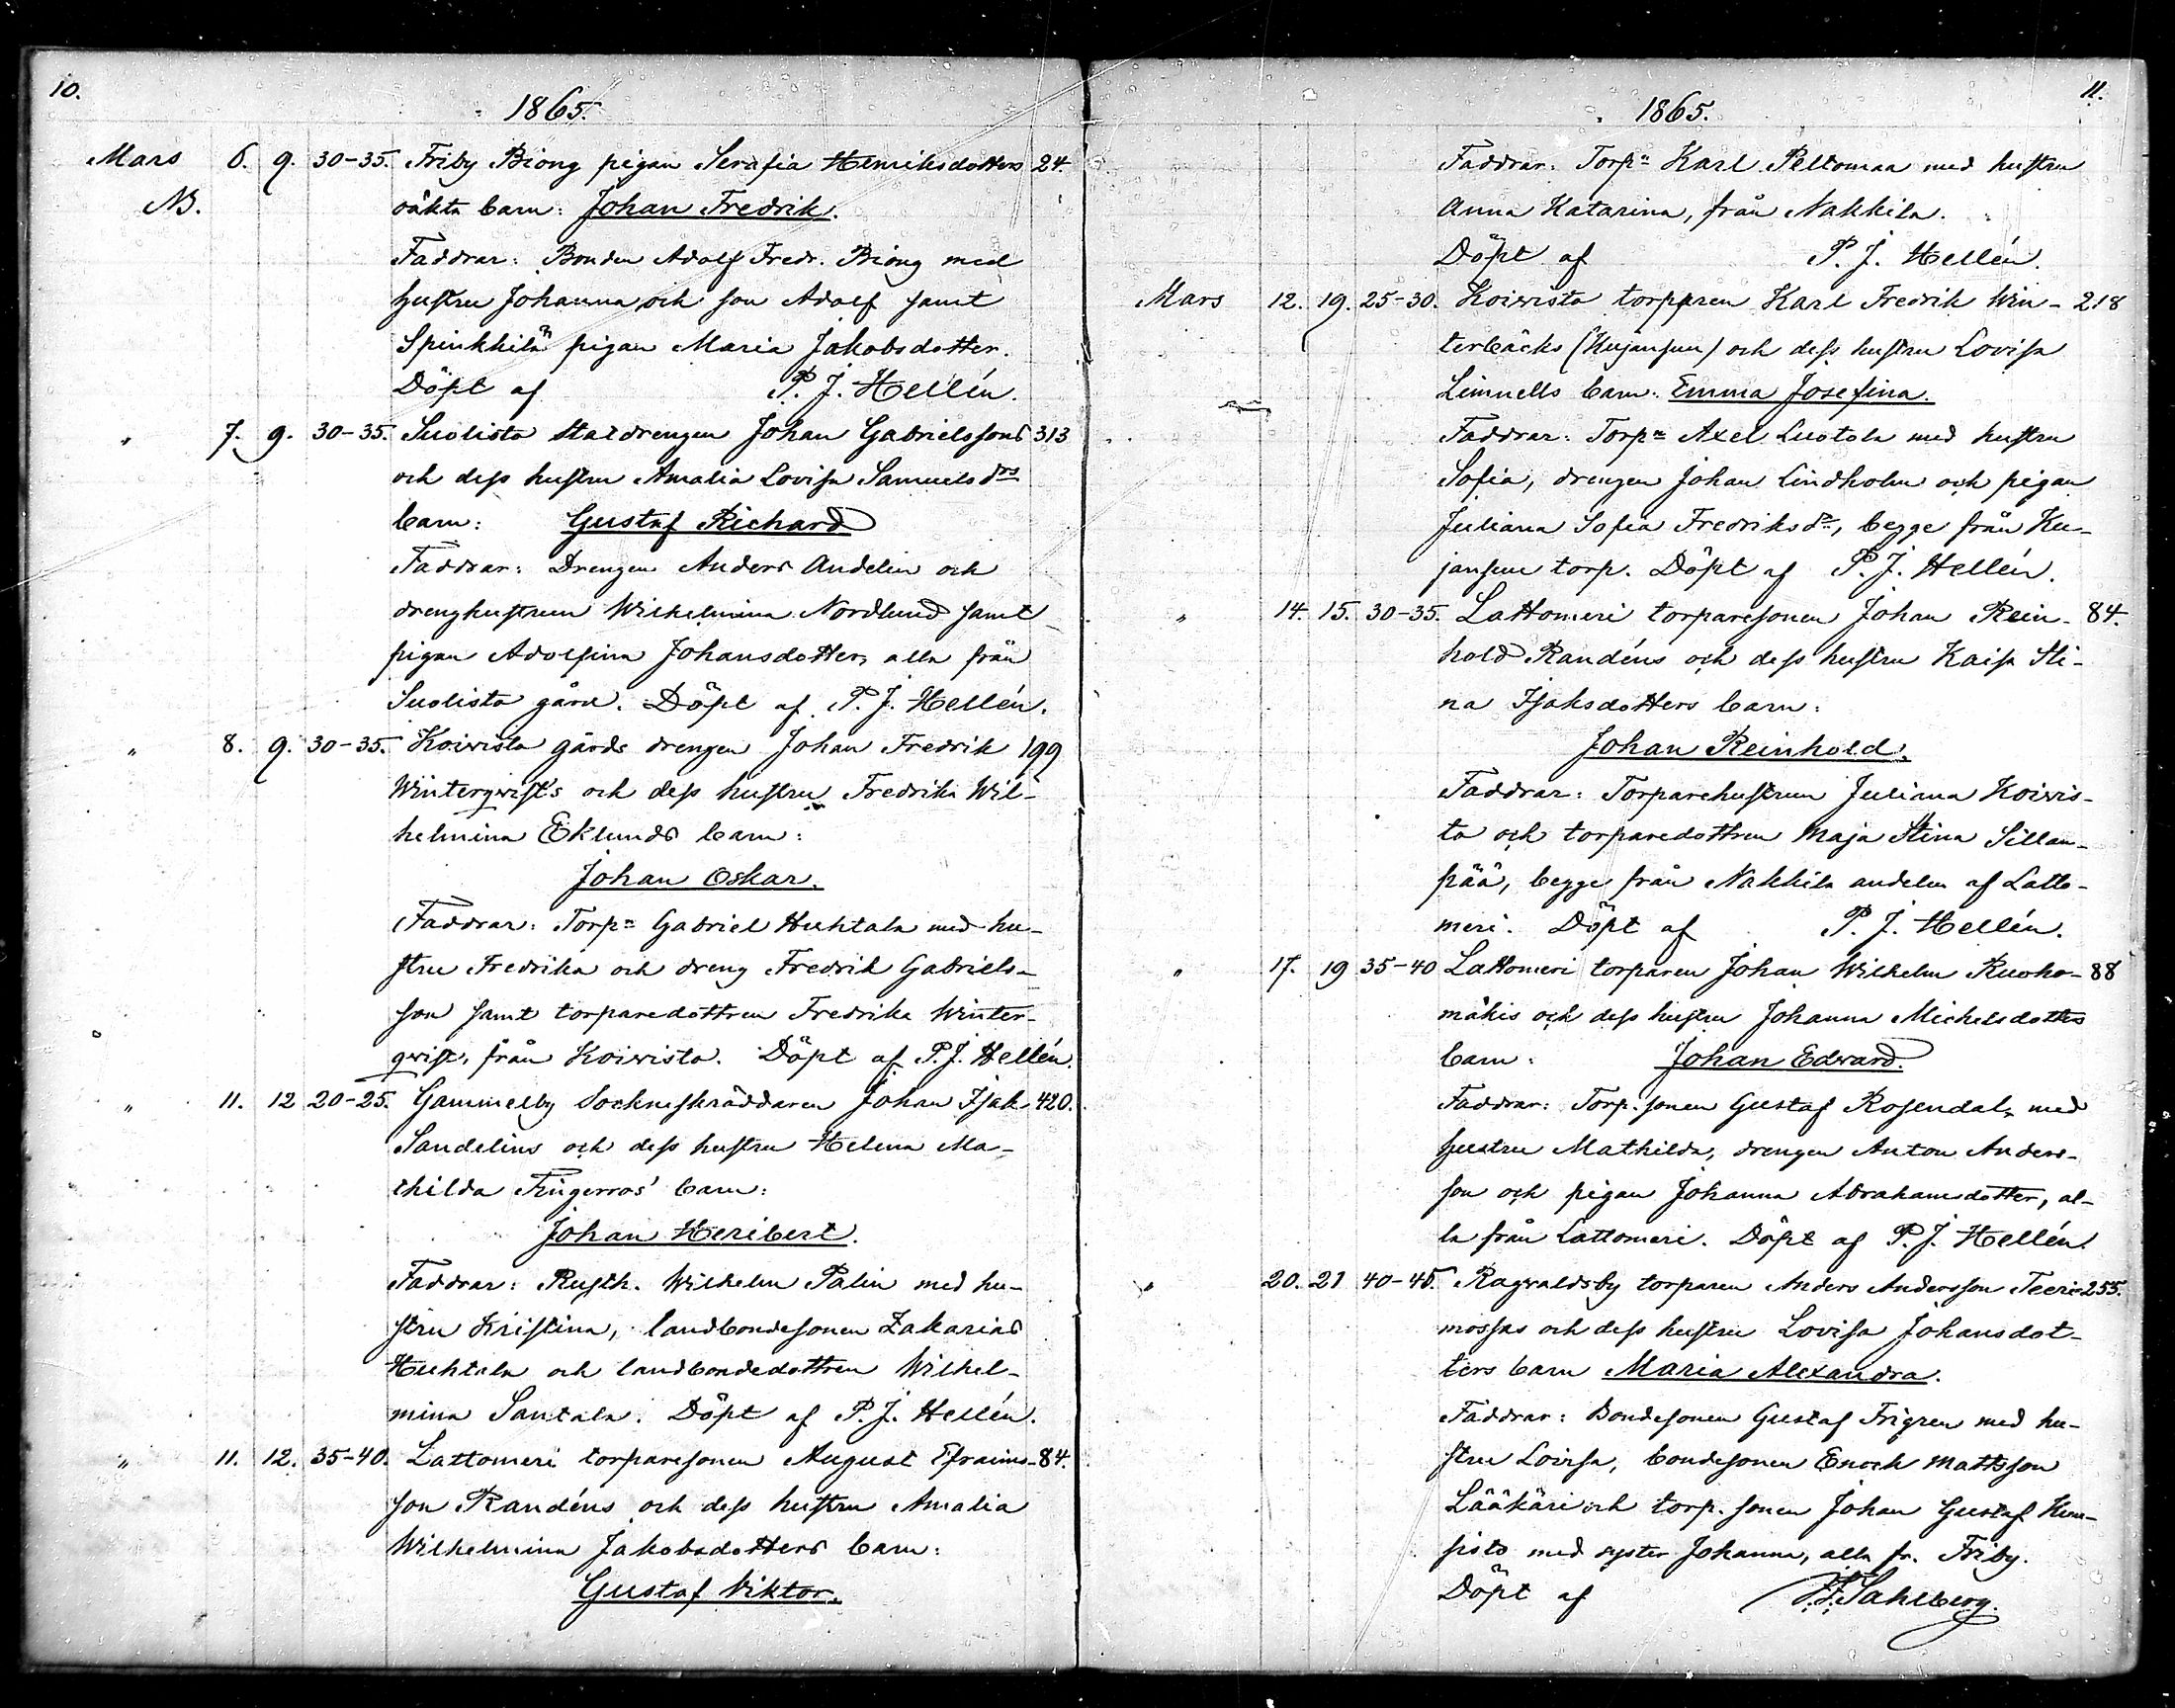 10.
1865.
Mars 6. 9. 30-35. Friby Biong pigan Serafia Henriksdotters 24.
NB. oäkta barn: Johan Fredrik.
Faddrar: Bonden Adolf Fredr. Biong med
hustru Johanna och son Adolf samt
Spinkkilä pigan Maria Jakobsdotter.
Döpt af P. J. Hellén.
" 7. 9. 30-35. Suolisto staldrengen Johan Gabrielssons 313
och dess hustru Amalia Lovisa Samuelsdrs
barn: Gustaf Richard
Faddrar: Drengen Anders Andelin och
drenghustrun Wilhelmina Nordlund samt
pigan Adolfina Johansdotter, alla från
Suolisto gård. Döpt af P. J. Hellén.
" 8. 9. 30-35. Koivisto gårds drengen Johan Fredrik 199
Winterqvist's och dess hustru Fredrika Wil-
helmina Eklunds barn:
Johan Oskar.
Faddrar: Torpn Gabriel Huhtala med hu-
stru Fredrika och dreng Fredrik Gabriels-
son samt torparedottren Fredrika Winter-
qvist, från Koivisto. Döpt af P. J. Hellén.
" 11. 12 20-25. Gammelby Sockneskräddaren Johan Isak 420.
Sandelins och dess hustru Helena Ma-
thilda Fingerroos' barn:
Johan Heribert.
Faddrar: Rusth. Wilhelm Palin med hu-
stru Kristina, landbondesonen Zakarias
Huhtala och landbondedottren Wilhel-
mina Santala. Döpt af P. J. Hellén.
" 11. 12. 35-40. Lattomeri torparesonen August Efraims- 84.
son Randéns och dess hustru Amalia
Wilhelmina Jakobsdotters barn:
Gustaf Viktor.
11.
1865.
Faddrar: Torpn Karl Peltomaa med hustru
Anna Katarina, från Nakkila.
Döpt af P. J. Hellén.
Mars 12. 19. 25-30. Koivisto torpparen Karl Fredrik Win- 218
terbäcks (Kujansuu) och dess hustru Lovisa
Limnells barn: Emma Josefina.
Faddrar: Torpn Axel Luotola med hustru
Sofia, drengen Johan Lindholm och pigan
Juliana Sofia Fredriksdr, begge från Ku-
jansuu torp. Döpt af P. J. Hellén.
" 14. 15. 30-35. Lattomeri torparesonen Johan Rein- 84.
hold Randéns och dess hustru Kaisa Sti-
na Isaksdotters barn:
Johan Reinhold.
Faddrar: Torparehustrun Juliana Koivis-
to och torparedottren Maja Stina Sillan-
pää, begge från Nakkila andelen af Latto-
meri. Döpt af P. J. Hellén.
" 17. 19 35-40 Lattomeri torparen Johan Wilhelm Ruoho- 88
mäkis och dess hustru Johanna Michelsdotters
barn: Johan Edvard.
Faddrar: Torp. sonen Gustaf Rosendal, med
hustru Mathilda, drengen Anton Anders-
son och pigan Johanna Abrahamsdotter, al-
la från Lattomeri. Döpt af P. J. Hellén.
" 20. 21 40-45. Ragvaldsby torparen Anders Andersson Teeri- 255.
mossas och dess hustru Lovisa Johansdot-
ters barn Maria Alexandra.
Faddrar: Bondesonen Gustaf Frigren med hu-
stru Lovisa, bondesonen Enoch Mattsson
Lääkäri och torp. sonen Johan Gustaf Kum-
pisto med syster Johanna, alla fr. Friby.
Döpt af Sahlberg.